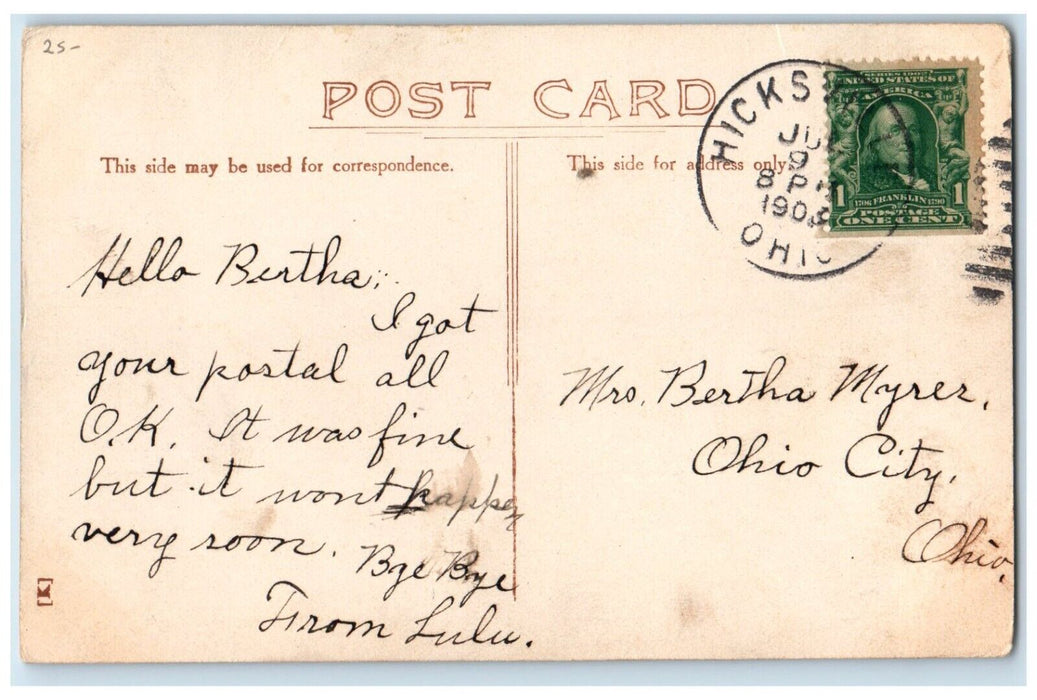 25-
POST CARD
This side may be used for correspondence.
This side for address only.
HICKS
JU
9
8 PM
190
OHIO
SERIES 1902
UNITED STATES OF
AMERICA
1 1
1706 FRANKLIN 1790
POSTAGE
ONE CENT
Hello Bertha;
I got
your postal all
O.K. It was fine
but it wont happen
very soon. Bye Bye
From Lulu.
Mrs. Bertha Myrez,
Ohio City,
Ohio,
K